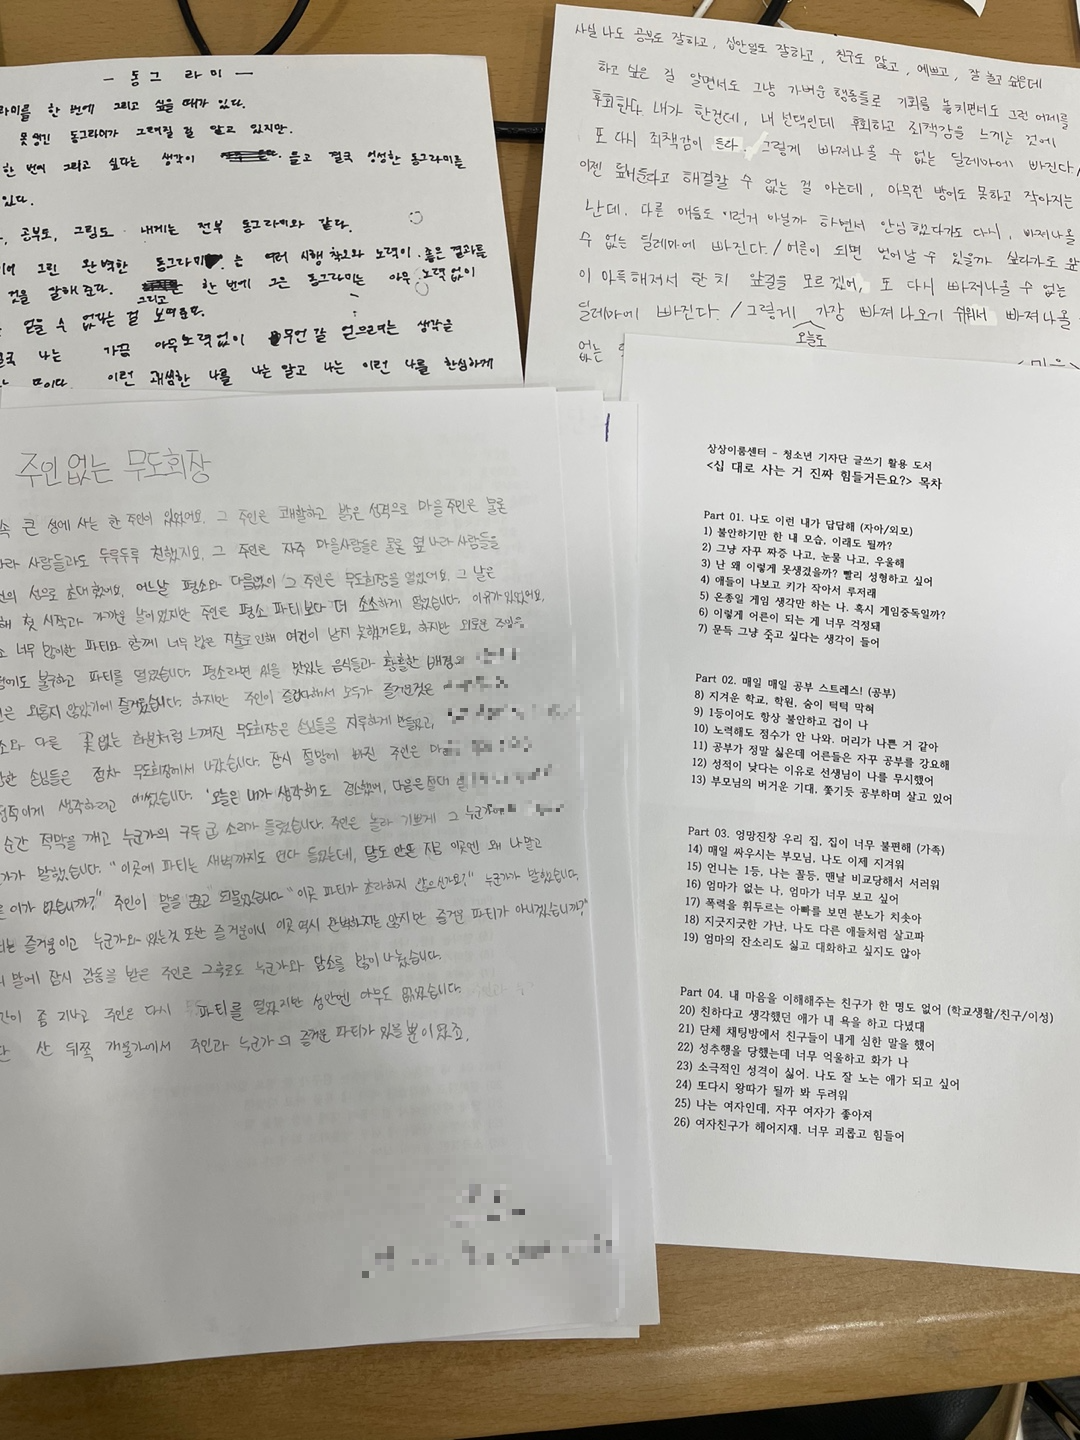 - 동그라미 -
를 한 번에 그리고 싶을 때가 있다.
못생긴 동그라미가 그려질 걸 알고 있지만.
한 번에 그리고 싶다는 생각이 들고 결국 엉성한 동그라미를
있다.
공부도, 그림도 내게는 전부 동그라미와 같다.
그린 완벽한 동그라미는 여러 시행착오와 노력이 좋은 결과를
것을 말해준다. 한 번에 그은 동그라미는 아무 노력 없이
그리고
얻을 수 없다는 걸 보여준다.
나는 가끔 아무 노력없이 무언갈 얻으려는 생각을
이런 나를 나는 알고 나는 이런 나를 한심하게
사실 나도 공부도 잘하고, 십안원도 잘하고, 친구도 많고, 예쁘고, 잘 놀고 싶은데
하고 싶은 걸 알면서도 그냥 가벼운 행동들로 기회를 놓치면서도 그런 어제를
후회한다. 내가 한건데, 내 선택인데 후회하고 죄책감을 느끼는 것에
또 다시 죄책감이 든다. 그렇게 빠져나올 수 없는 딜레마에 빠진다./
이젠 해결할 수 없는 걸 아는데, 아무런 방어도 못하고 작아지는
난데. 다른 애들도 이런거 아닐까 하면서 안심했다가도 다시, 빠져나올
수 없는 딜레마에 빠진다./어른이 되면 벗어날 수 있을까 싶다가도 앞
이 아득해져서 한 치 앞길을 모르겠어, 또 다시 빠져나올 수 없는
딜레마에 빠진다. /그렇게 가장 빠져 나오기 쉬워서 빠져나올
오늘도
없는
주인 없는 무도회장
속 큰 성에 사는 한 주인이 있었어요. 그 주인은 쾌활하고 밝은 성격으로 마을주민은 물론
사람들과도 두루두루 친했지요. 그 주인은 자주 마을사람들은 물론 옆 나라 사람들을
성으로 초대했어요. 어느날 평소와 다름없이 그 주인은 무도회장을 열었어요. 그 날은
해 첫 시작과 가까운 날이었지만 주인은 평소 파티보다 더 소소하게 열었습니다. 이유가 있었어요.
너무 많이한 파티와 함께 너무 많은 지출로 인해 여건이 남지 못했거든요, 하지만 외로운 주인은
에도 불구하고 파티를 열었습니다. 평소라면 있을 맛있는 음식들과 황홀한 배경의
은 외롭지 않았기에 즐거웠습니다. 하지만 주인이 즐겁다해서 모두가 즐거운것은
다른 꽃 없는 화분처럼 느껴진 무도회장은 손님들을 지루하게 만들었고,
한 손님들은 점차 무도회장에서 나갔습니다. 잠시 절망에 빠진 주인은
생각하려고 애썼습니다. '오늘은 내가 생각해도 검소했어, 다음은 절대
순간 적막을 깨고 누군가의 구두굽 소리가 들렸습니다. 주인은 놀라 기쁘게 그 누군가에
가 말했습니다. "이곳에 파티는 새벽까지도 연다 들었는데, 달도 안뜬 지금 이곳엔 왜 나말고
이가 없습니까?" 주인이 말을 듣고 되물었습니다 "이곳 파티가 초라하지 않으신가요?" 누군가가 말했습니다.
는 즐거움이고 누군가와 있는것 또한 즐거움이니 이곳 역시 완벽하지는 않지만 즐거운 파티가 아니겠습니까?"
말에 잠시 감동을 받은 주인은 그후로도 누군가와 담소를 많이 나눴습니다.
시간이 좀 지나고 주인은 다시 파티를 열었지만 성안엔 아무도 없었습니다.
산 뒤쪽 개울가에서 주인과 누군가의 즐거운 파티가 있을 뿐이었죠.
1
상상이룸센터 - 청소년 기자단 글쓰기 활용 도서
<십 대로 사는 거 진짜 힘들거든요?> 목차
Part 01. 나도 이런 내가 답답해 (자아/외모)
1) 불안하기만 한 내 모습, 이래도 될까?
2) 그냥 자꾸 짜증 나고, 눈물 나고, 우울해
3) 난 왜 이렇게 못생겼을까? 빨리 성형하고 싶어
4) 애들이 나보고 키가 작아서 루저래
5) 온종일 게임 생각만 하는 나. 혹시 게임중독일까?
6) 이렇게 어른이 되는 게 너무 걱정돼
7) 문득 그냥 죽고 싶다는 생각이 들어
Part 02. 매일 매일 공부 스트레스! (공부)
8) 지겨운 학교, 학원, 숨이 턱턱 막혀
9) 1등이어도 항상 불안하고 겁이 나
10) 노력해도 점수가 안 나와. 머리가 나쁜 거 같아
11) 공부가 정말 싫은데 어른들은 자꾸 공부를 강요해
12) 성적이 낮다는 이유로 선생님이 나를 무시했어
13) 부모님의 버거운 기대, 쫓기듯 공부하며 살고 있어
Part 03. 엉망진창 우리 집, 집이 너무 불편해 (가족)
14) 매일 싸우시는 부모님, 나도 이제 지겨워
15) 언니는 1등, 나는 꼴등, 맨날 비교당해서 서러워
16) 엄마가 없는 나, 엄마가 너무 보고 싶어
17) 폭력을 휘두르는 아빠를 보면 분노가 치솟아
18) 지긋지긋한 가난, 나도 다른 애들처럼 살고파
19) 엄마의 잔소리도 싫고 대화하고 싶지도 않아
Part 04. 내 마음을 이해해주는 친구가 한 명도 없어 (학교생활/친구/이성)
20) 친하다고 생각했던 애가 내 욕을 하고 다녔대
21) 단체 채팅방에서 친구들이 내게 심한 말을 했어
22) 성추행을 당했는데 너무 억울하고 화가 나
23) 소극적인 성격이 싫어. 나도 잘 노는 애가 되고 싶어
24) 또다시 왕따가 될까 봐 두려워
25) 나는 여자인데, 자꾸 여자가 좋아져
26) 여자친구가 헤어지재. 너무 괴롭고 힘들어